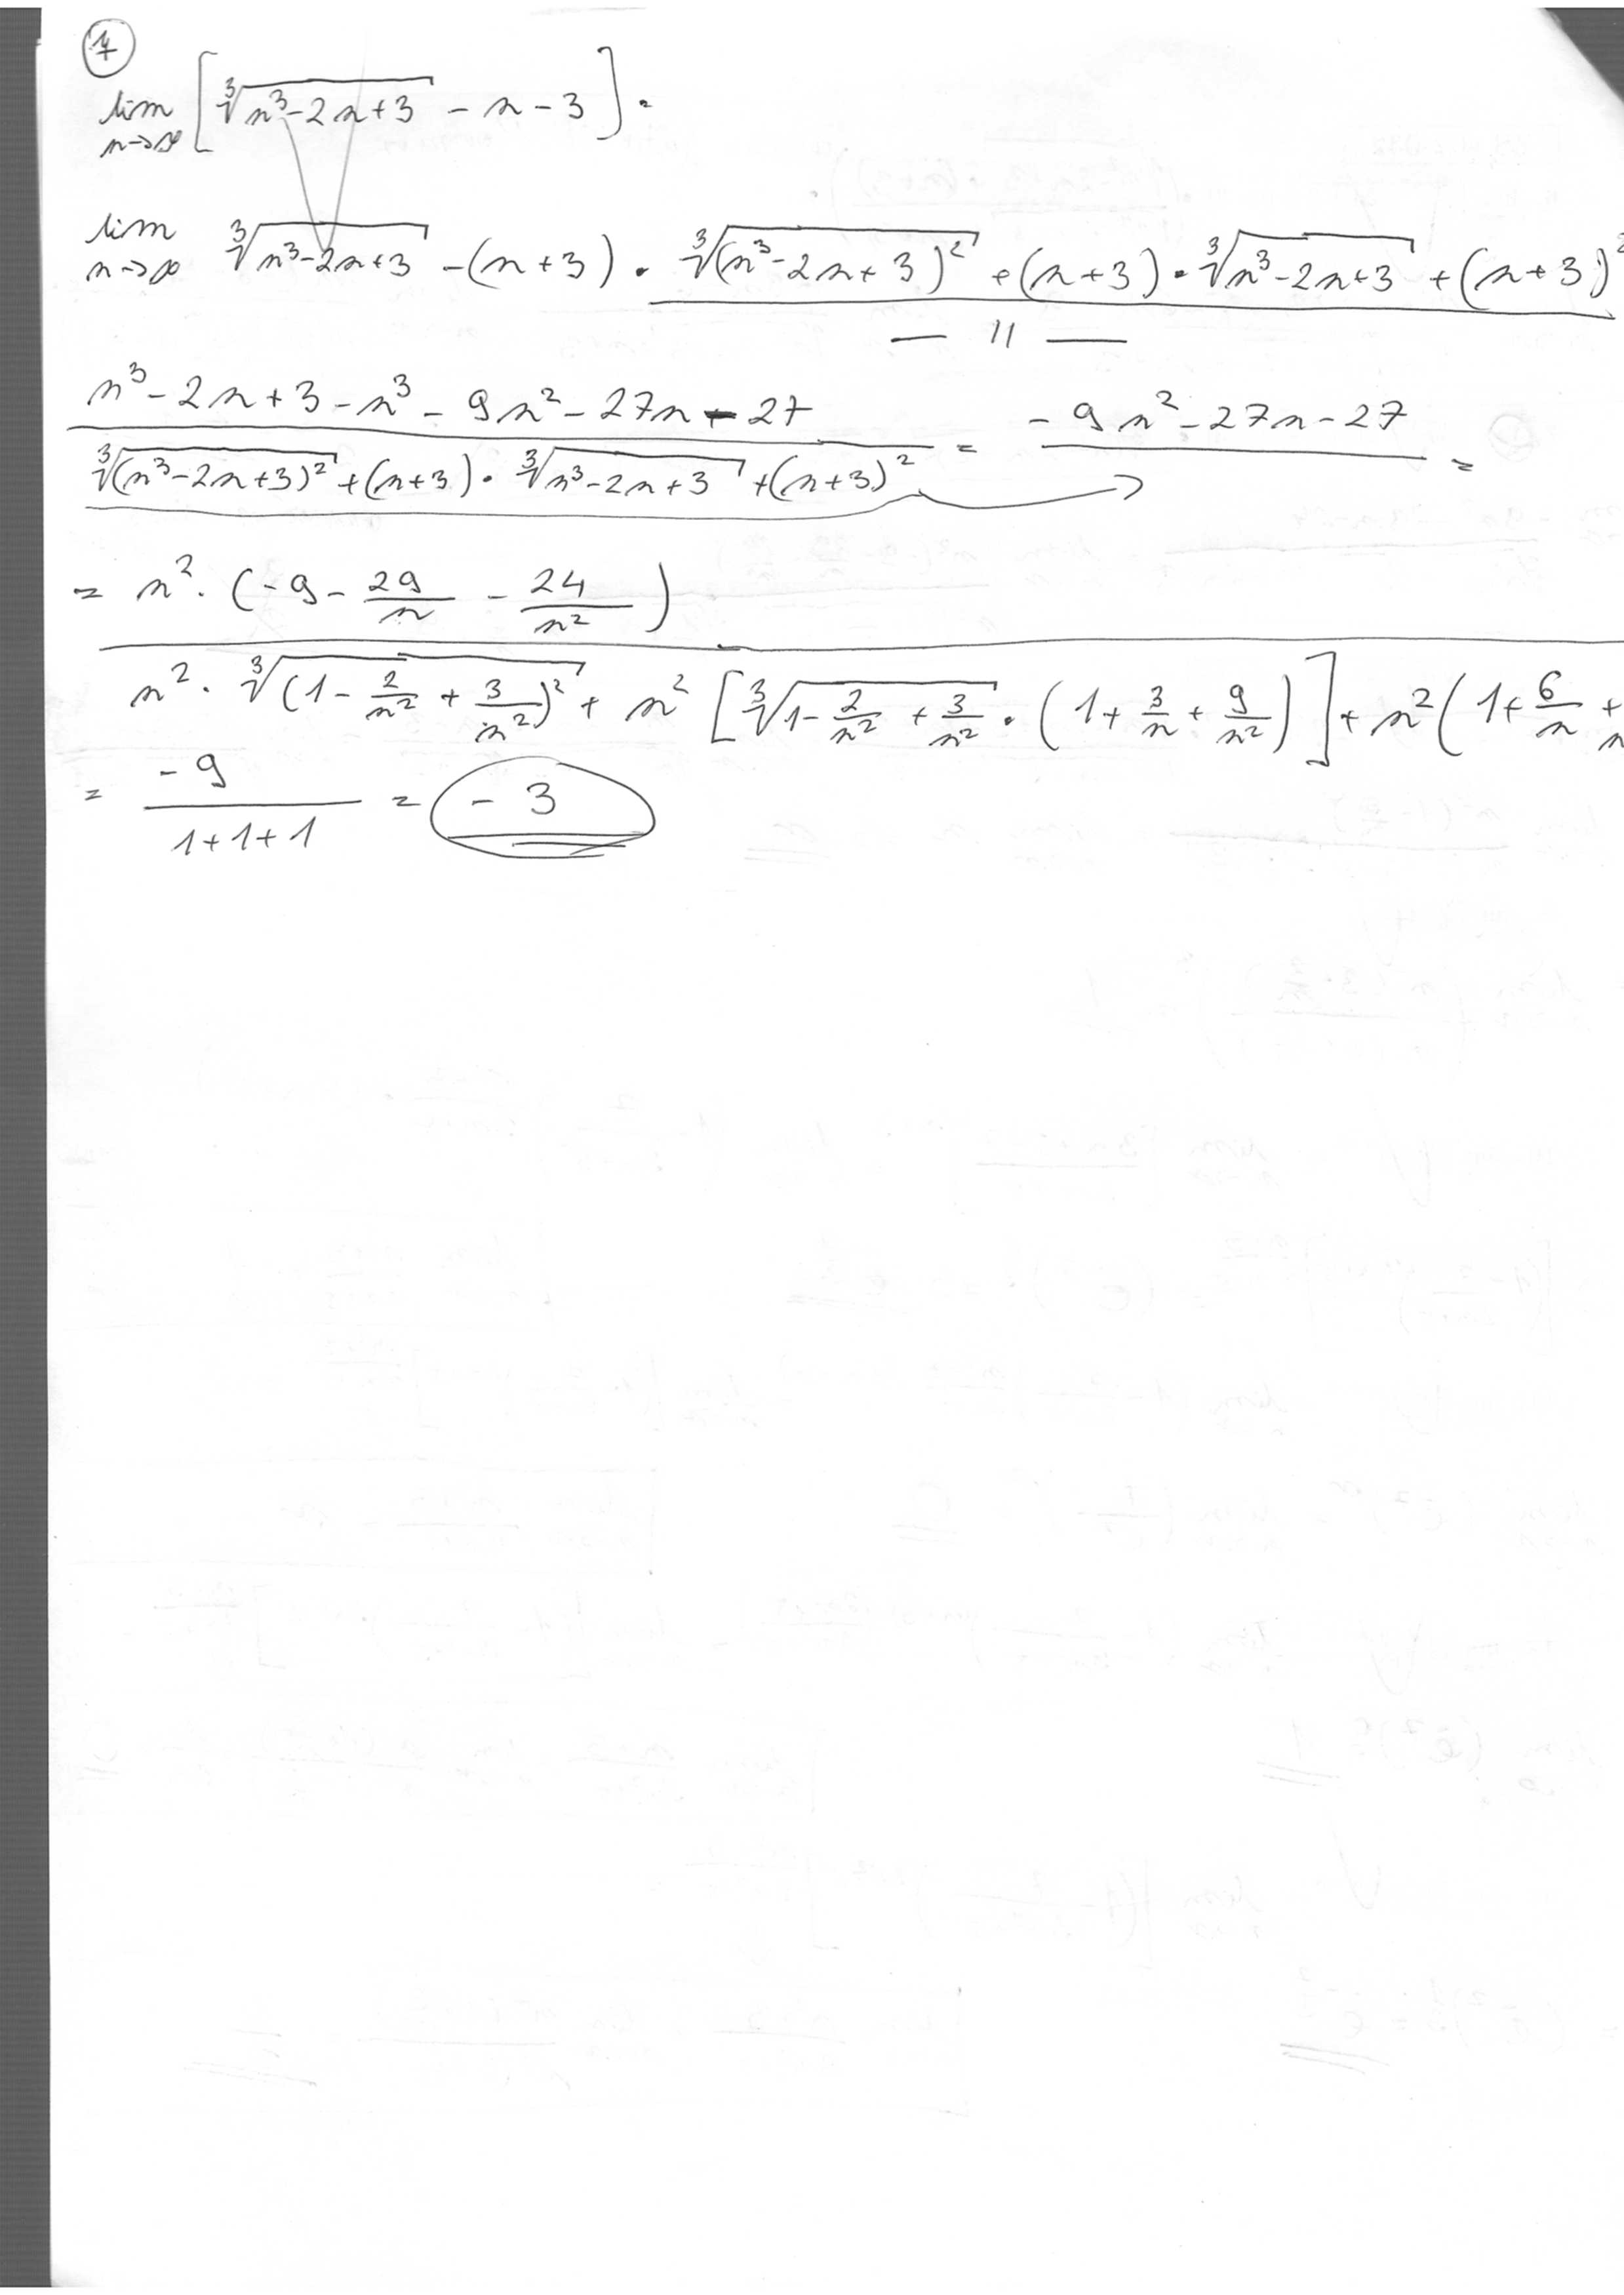 1
lim n→∞ [∛(n³-2n+3) - n - 3] ·
lim n→∞ ∛(n³-2n+3) - (n+3) · (∛((n³-2n+3)²) + (n+3) · ∛(n³-2n+3) + (n+3)²) / (— 〃 —)
(n³-2n+3-n³-9n²-27n-27) / (∛((n³-2n+3)²) + (n+3) · ∛(n³-2n+3) + (n+3)²) = (-9n²-27n-27) / → =
= n² · (-9 - 29/n - 24/n²) / (n² · ∛((1 - 2/n² + 3/n²)²) + n² [∛(1 - 2/n² + 3/n²) · (1 + 3/n + 9/n²)] + n² (1 + 6/n +
= -9 / (1+1+1) = -3